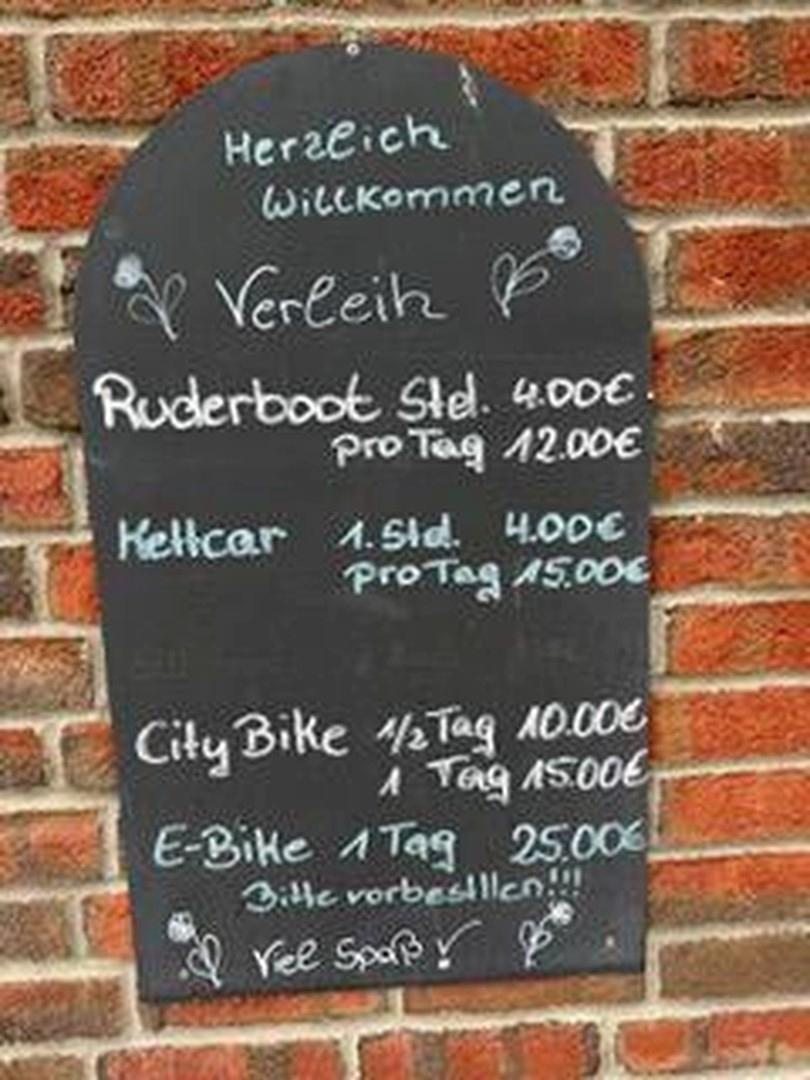 Herzlich
Willkommen
Verleih
Ruderboot Std. 4.00€
pro Tag 12.00€
Kettcar 1. Std. 4.00€
pro Tag 15.00€
City Bike 1/2 Tag 10.00€
1 Tag 15.00€
E-Bike 1 Tag 25.00€
Bitte vorbestllen!!!
Viel Spaß!